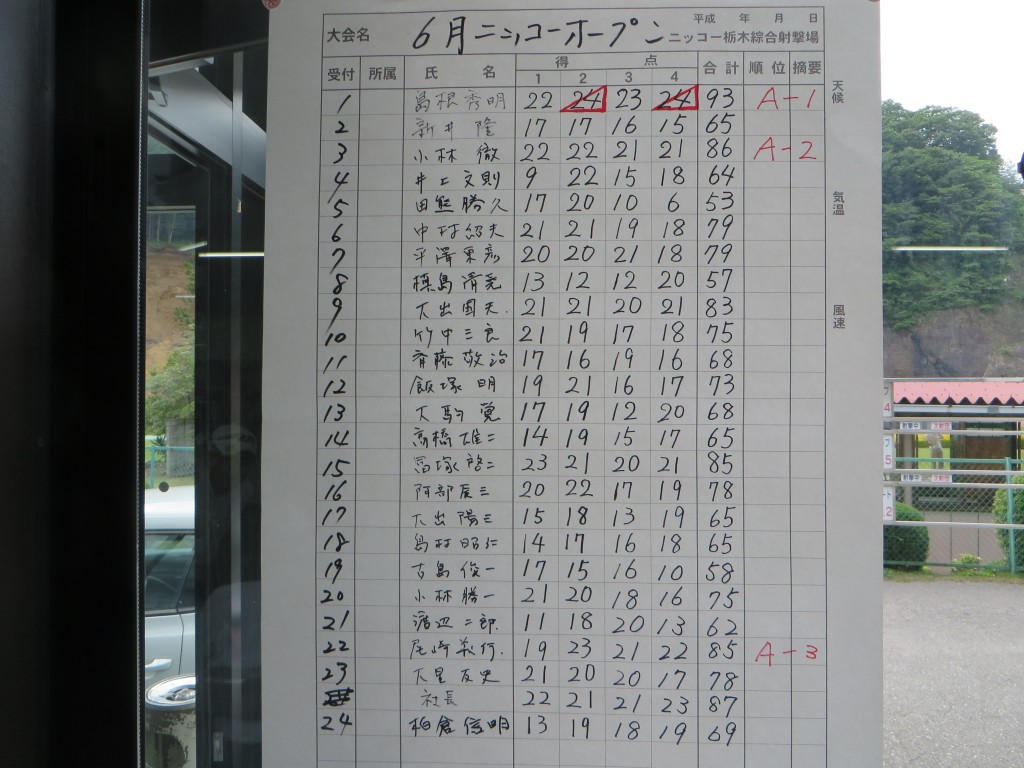 大会名 6月ニッコーオープン 平成 年 月 日
ニッコー栃木綜合射撃場
受付 所属 氏名 得点 合計 順位 摘要
1 2 3 4
1 島根秀明 22 24 23 24 93 A-1
2 新井 隆 17 17 16 15 65
3 小林 徹 22 22 21 21 86 A-2
4 井上文則 9 22 15 18 64
5 田熊勝久 17 20 10 6 53
6 中村紹夫 21 21 19 18 79
7 平澤 20 20 21 18 79
8 島清 13 12 12 20 57
9 大出国夫 21 21 20 21 83
10 竹中三良 21 19 17 18 75
11 斉藤敬治 17 16 19 16 68
12 飯塚 明 19 21 16 17 73
13 大駒 覚 17 19 12 20 68
14 高橋雄二 14 19 15 17 65
15 冨塚啓二 23 21 20 21 85
16 阿部辰三 20 22 17 19 78
17 大出陽三 15 18 13 19 65
18 島村昭仁 14 17 16 18 65
19 古島俊一 17 15 16 10 58
20 小林勝一 21 20 18 16 75
21 渡辺二郎 11 18 20 13 62
22 尾崎義行 19 23 21 22 85 A-3
23 大皇友史 21 20 20 17 78
社長 22 21 21 23 87
24 柏倉信明 13 19 18 19 69
天候
気温
風速
4
5
2
射撃中